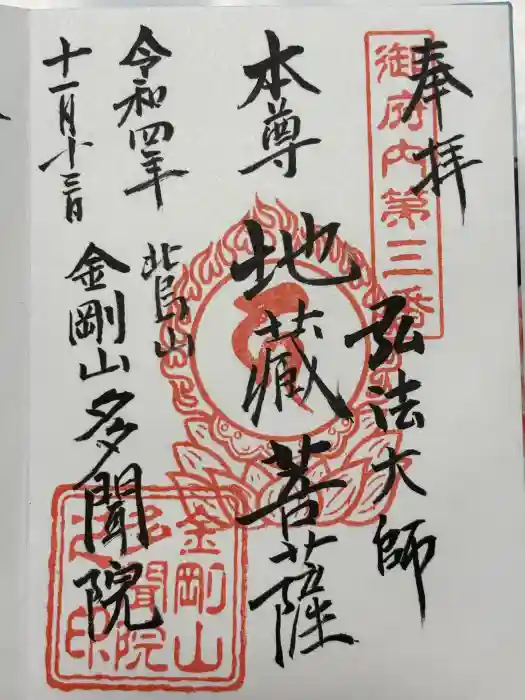 奉拝
御府内第三番
弘法大師
本尊
地蔵菩薩
令和四年
烏山
十一月十三日
金剛山多聞院
金剛山
多聞院
之印